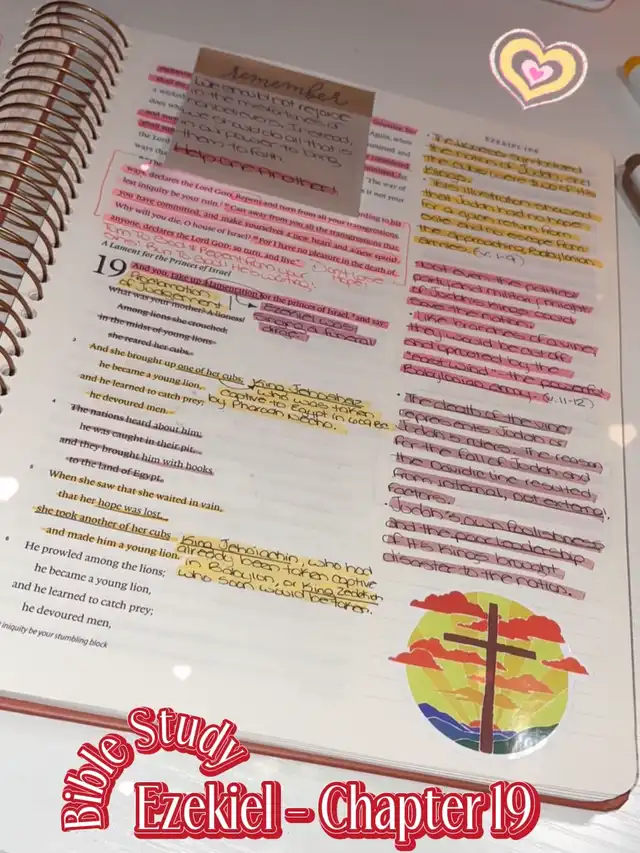 remember
We should not rejoice
in the misfortunes of
nonbelievers. Instead,
we should do all that is
in our power to bring
them to faith.
Help one Another!
ways, declares the Lord GOD. Repent and turn from all your transgressions,
lest iniquity be your ruin. Cast away from you all the transgressions that
you have committed, and make yourselves a new heart and a new spirit!
Why will you die, O house of Israel? For I have no pleasure in the death of
anyone, declares the Lord GOD; so turn, and live.
Don't lose
Hope!
A Lament for the Princes of Israel
19 And you, take up a lamentation for the princes of Israel, and say:
What was your mother? A lioness!
Among lions she crouched;
in the midst of young lions
she reared her cubs.
Ezekiel was
singing a funeral
dirge.
And she brought up one of her cubs;
he became a young lion,
and he learned to catch prey;
he devoured men.
King Jehoahaz,
who was taken
captive to Egypt in
by Pharaoh Necho.
The nations heard about him;
he was caught in their pit,
and they brought him with hooks
to the land of Egypt.
When she saw that she waited in vain,
that her hope was lost,
she took another of her cubs
and made him a young lion.
King Jehoiachin, who had
already been taken captive
in Babylon, or King Zedekiah
who soon would be taken.
6 He prowled among the lions;
he became a young lion,
and he learned to catch prey;
he devoured men,
iniquity be your stumbling block
EZEKIEL
The lioness symbolized
This illustration
that Judah had
(v. 1-9)
Not even the political
and military might
of Judah's kings could
save the nation.
Like branches of a vine,
they would be cut off
and uprooted by the
"east wind" - the powerful
Babylonian army. (v. 11-12)
The death of the vine
represents Judah or
Judah's rulers. The reason
for the fall of Judah and
the Davidic line resulted
from internal, not external
factors.
Judah's own foolishness
and the poor leadership
of its kings brought
disaster to the nation.
Bible Study
Ezekiel - Chapter 19